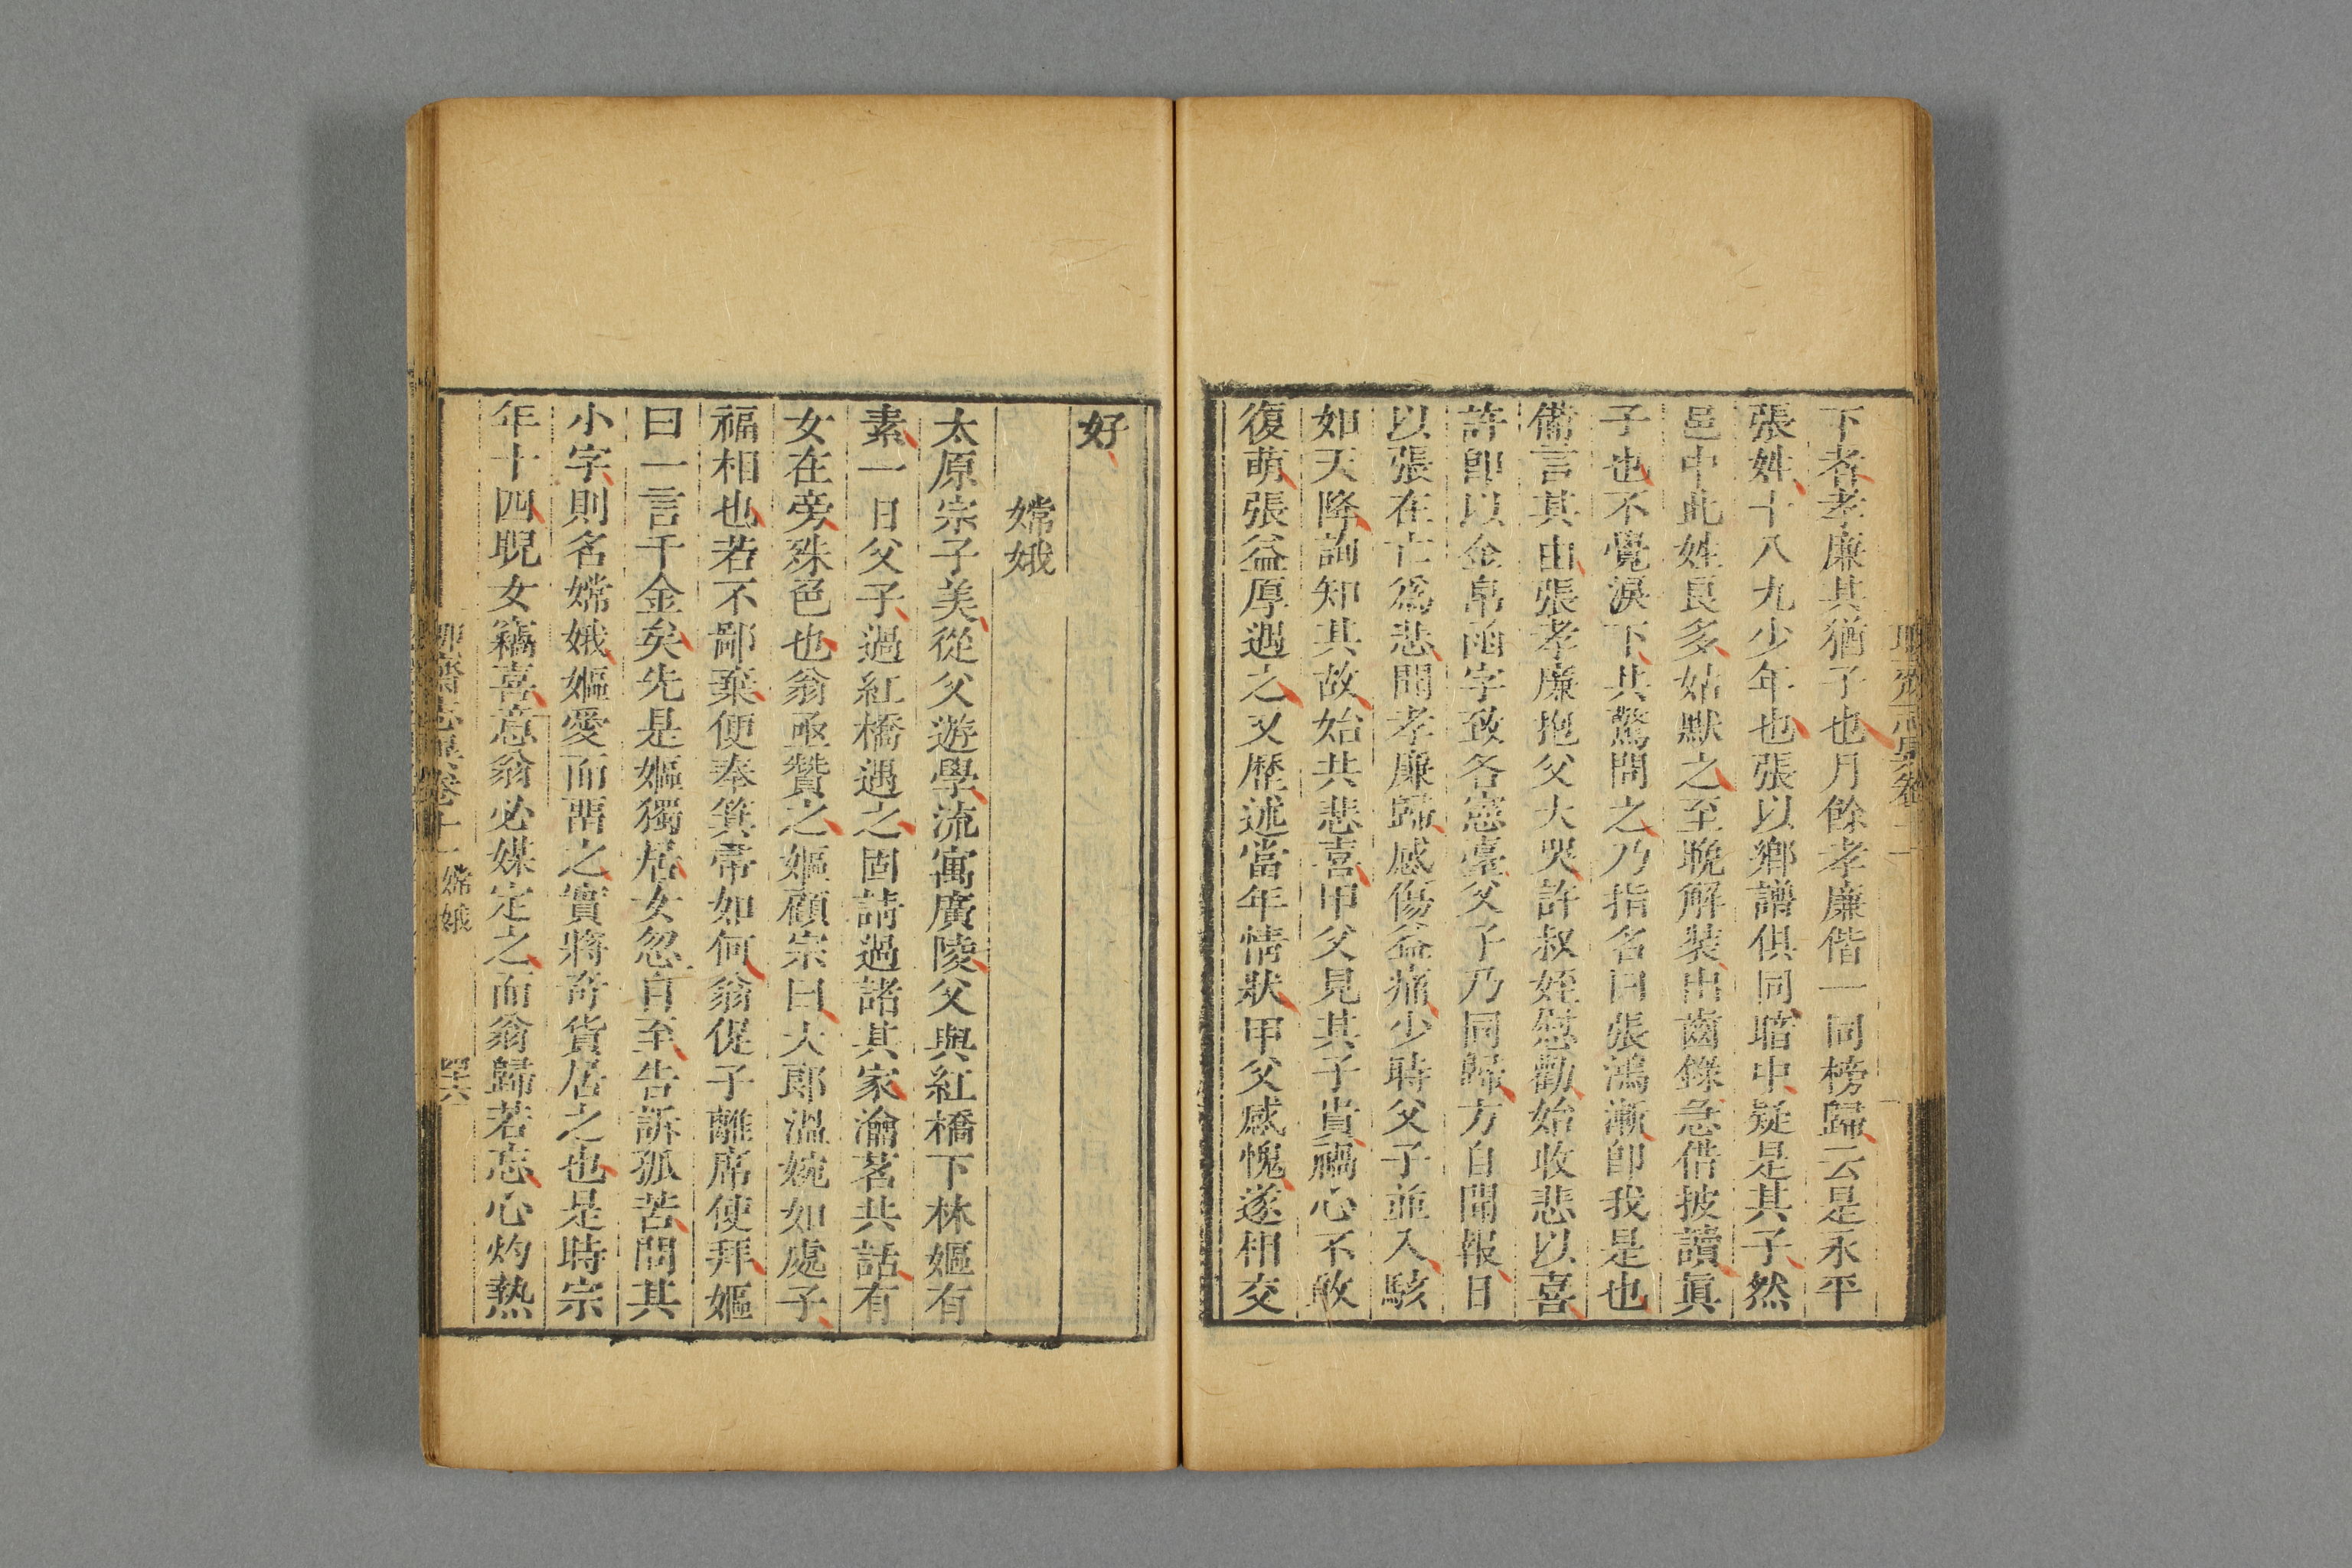 下者孝廉其猶子也月餘孝廉偕一同榜歸云是永平
張姓十八九少年也張以鄉譜俱同暗中疑是其子然
邑中此姓良多姑默之至晚解裝出齒錄急借披讀眞
子也不覺淚下共驚問之乃指名曰張鴻漸卽我是也
備言其由張孝廉抱父大哭許叔姪慰勸始收悲以喜
許卽以金帛函字致各憲臺父子乃同歸方自聞報日
以張在亡爲悲聞孝廉歸感傷益痛少時父子並入駭
如天降詢知其故始共悲喜甲父見其子貴禍心不敢
復萌張益厚遇之又歷述當年情狀甲父感愧遂相交
好
嫦娥
太原宗子美從父遊學流寓廣陵父與紅橋下林嫗有
素一日父子過紅橋遇之固請過諸其家瀹茗共話有
女在旁殊色也翁亟贊之嫗顧宗曰大郎溫婉如處子
福相也若不鄙棄便奉箕帚如何翁促子離席使拜嫗
曰一言千金矣先是嫗獨居女忽自至告訴孤苦問其
小字則名嫦娥嫗愛而畱之實將奇貨居之也是時宗
年十四睨女竊喜意翁必媒定之而翁歸若忘心灼熱
聊齋志異卷十一 嫦娥